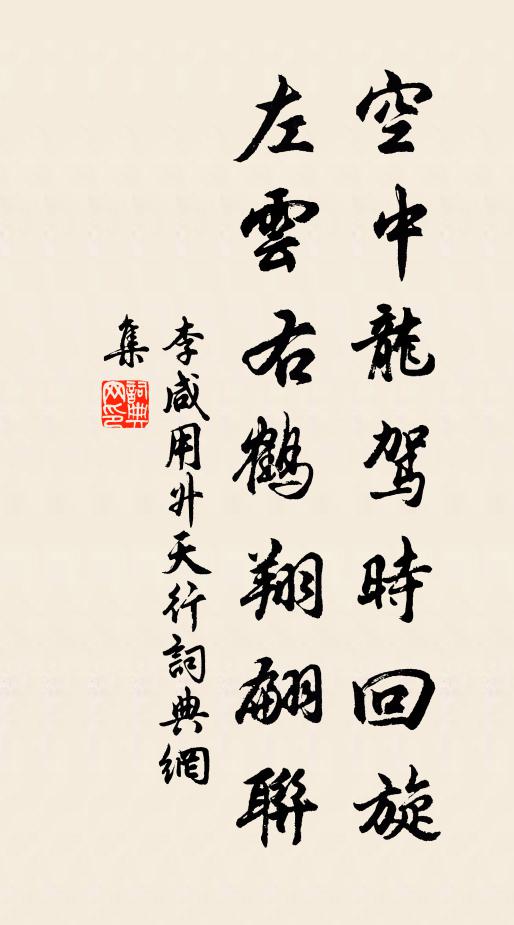 空中龍駕時回旋
左雲右鶴翔翩聯
李咸用升天行詞典網
集
詞典
网印